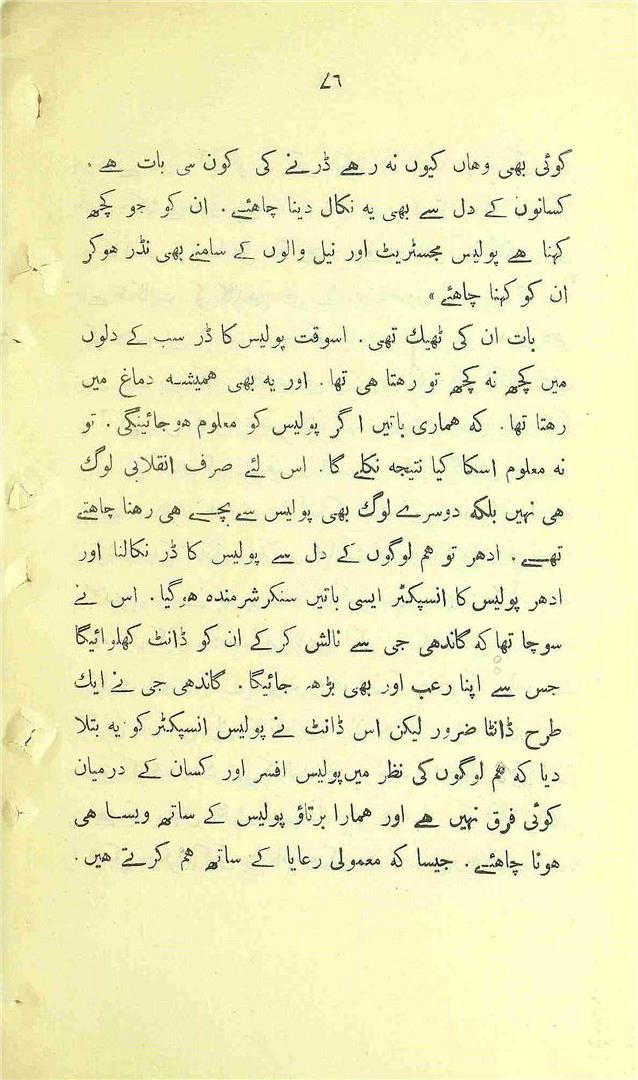 ٧٦
کوئی بھی وھاں کیوں نہ رھے ڈرنے کی کون سی بات ھے ۔
کسانوں کے دل سے بھی یہ نکال دینا چاھئے ۔ ان کو جو کچھ
کہنا ھے پولیس مجسٹریٹ اور نیل والوں کے سامنے بھی نڈر ھوکر
ان کو کہنا چاھئے »
بات ان کی ٹھیك تھی ۔ اسوقت پولیس کا ڈر سب کے دلوں
میں کچھ نہ کچھ تو رھتا ھی تھا ۔ اور یہ بھی ھمیشہ دماغ میں
رھتا تھا ۔ کہ ھماری باتیں اگر پولیس کو معلوم ھوجائینگی ۔ تو
نہ معلوم اسکا کیا نتیجہ نکلے گا ۔ اس لئے صرف انقلابی لوگ
ھی نہیں بلکہ دوسرے لوگ بھی پولیس سے بچے ھی رھنا چاھتے
تھے ۔ ادھر تو ھم لوگوں کے دل سے پولیس کا ڈر نکالنا اور
ادھر پولیس کا انسپکٹر ایسی باتیں سنکر شرمندہ ھوگیا ۔ اس نے
سوچا تھا کہ گاندھی جی سے نالش کرکے ان کو ڈانٹ کھلوائیگا
جس سے اپنا رعب اور بھی بڑھ جائیگا ۔ گاندھی جی نے ایك
طرح ڈانٹا ضرور لیکن اس ڈانٹ نے پولیس انسپکٹر کو یہ بتلا
دیا کہ ھم لوگوں کی نظر میں پولیس افسر اور کسان کے درمیان
کوئی فرق نہیں ھے اور ھمارا برتاؤ پولیس کے ساتھ ویسا ھی
ھونا چاھئے ۔ جیسا کہ معمولی رعایا کے ساتھ ھم کرتے ھیں ۔